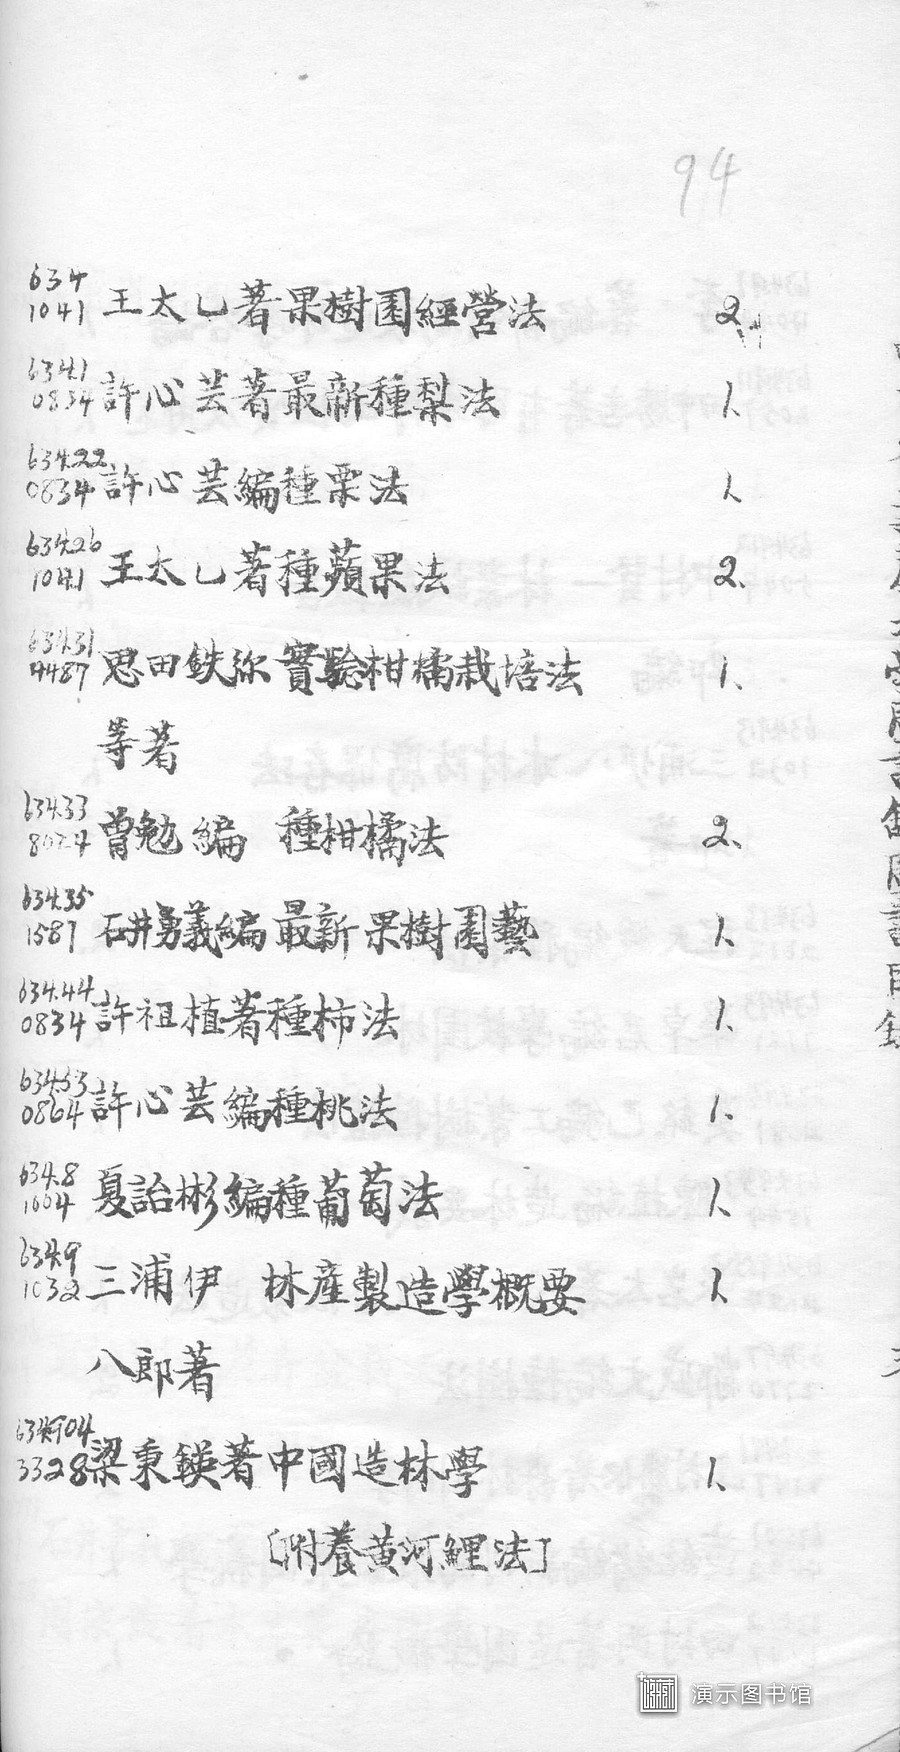 94
634
1041 王太乙著果樹園經營法 2.
634.1
0834 許心芸著最新種梨法 1.
634.22
0834 許心芸編種栗法 1.
634.26
1041 王太乙著種蘋果法 2.
634.31
4487 恩田鉄弥 實驗柑橘栽培法 1.
等著
634.33
8024 曾勉編 種柑橘法 2.
634.35
1587 石井勇義編最新果樹園藝 1.
634.44
0834 許祖植著種柿法 1.
634.53
0864 許心芸編種桃法 1.
634.8
1004 夏詒彬編種葡萄法 1.
634.9
1032 三浦伊 林産製造學概要 1.
八郎著
634.904
3328 梁秉鍈著中國造林學 1.
[附養黄河鯉法]
演示图书馆